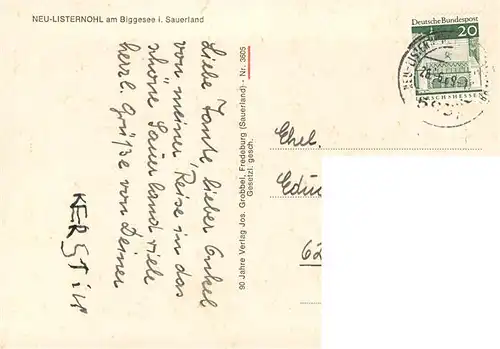 NEU-LISTERNOHL am Biggesee i. Sauerland
Liebe Tante, lieber Onkel
von meiner Reise in das
schöne Sauerland viele
herzl. Grüße von Deiner
KERSTIN
90 Jahre Verlag Jos. Grobbel, Fredeburg (Sauerland) - Nr. 3605
Gesetzl. gesch.
Deutsche Bundespost
20
Ehel.
62